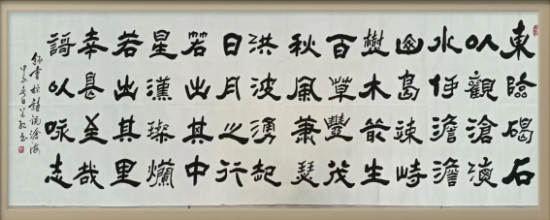 東臨碣石
以觀滄海
水何澹澹
山島竦峙
樹木叢生
百草豐茂
秋風蕭瑟
洪波湧起
日月之行
若出其中
星漢燦爛
若出其里
幸甚至哉
謌以詠志
錄曹操詩觀滄海